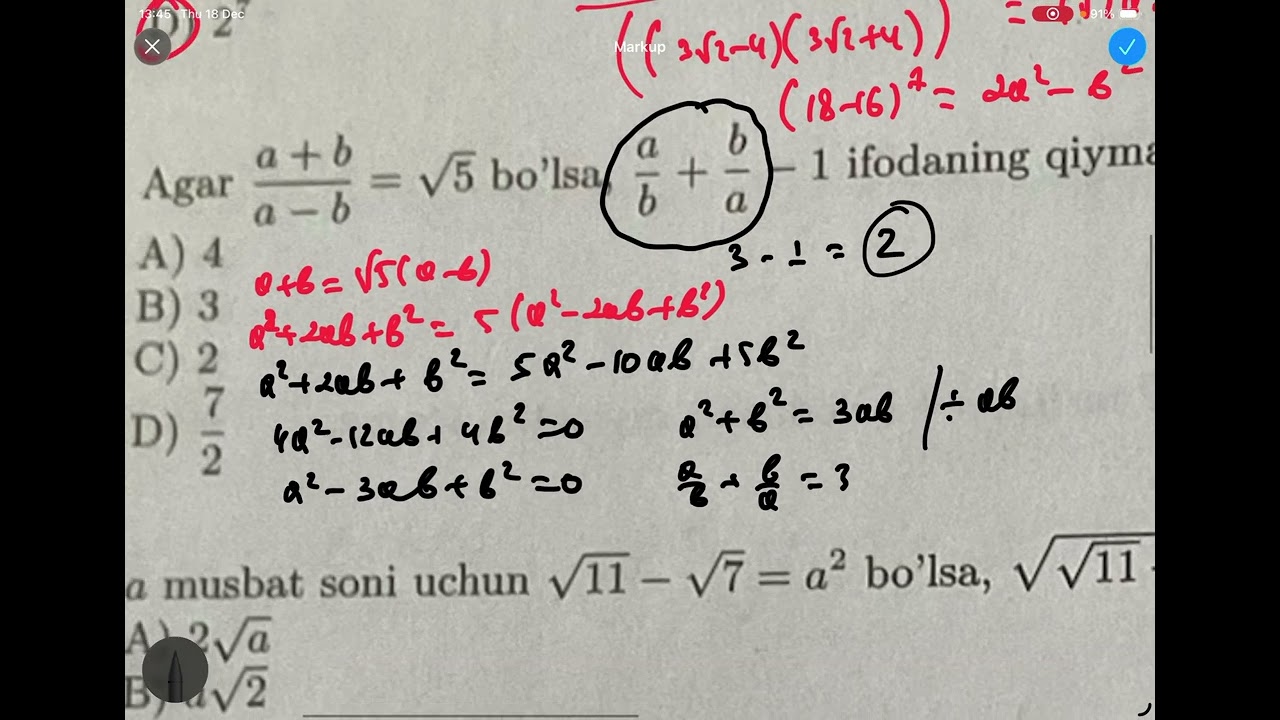 13:45 Thu 18 Dec
91%
Markup
D) 2
((3√2-4)(3√2+4))
(18-16)² = 2a² - b²
Agar (a + b)/(a − b) = √5 bo'lsa, a/b + b/a − 1 ifodaning qiyma
3 - 1 = 2
A) 4
B) 3
C) 2
D) 7/2
a+b = √5(a-b)
a²+2ab+b² = 5(a²-2ab+b²)
a²+2ab+b² = 5a²-10ab+5b²
4a²-12ab+4b²=0
a²-3ab+b²=0
a²+b² = 3ab /÷ab
a/b + b/a = 3
a musbat soni uchun √11 − √7 = a² bo'lsa, √√11
A) 2√a
B) √2